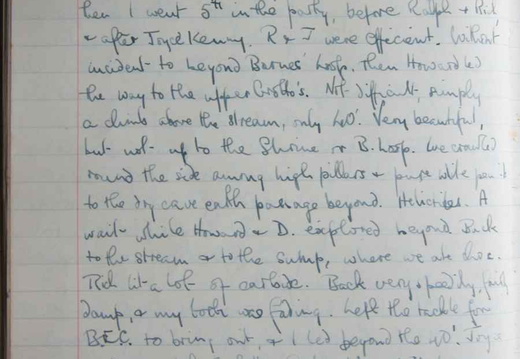 hen I went 5th in the party, before Ralph & Rich
& after Joyce Kenny. R & J were efficient. Without
incident to beyond Barnes' Loop, then Howard led
the way to the upper Grotto's. Not difficult, simply
a climb above the stream, only 40'. Very beautiful,
but not up to the Shrine or B. Loop. We crawled
round the side among high pillars & pure white
to the dry cave earth passage beyond. Helictites. A
wait while Howard & D. explored beyond. Back
to the stream & to the sump, where we ate choc.
Rich lit a lot of carbide. Back very speedily,
damp, & my torch was fading. Left the tackle for
B.E.C. to bring out, & I led beyond the 40'.